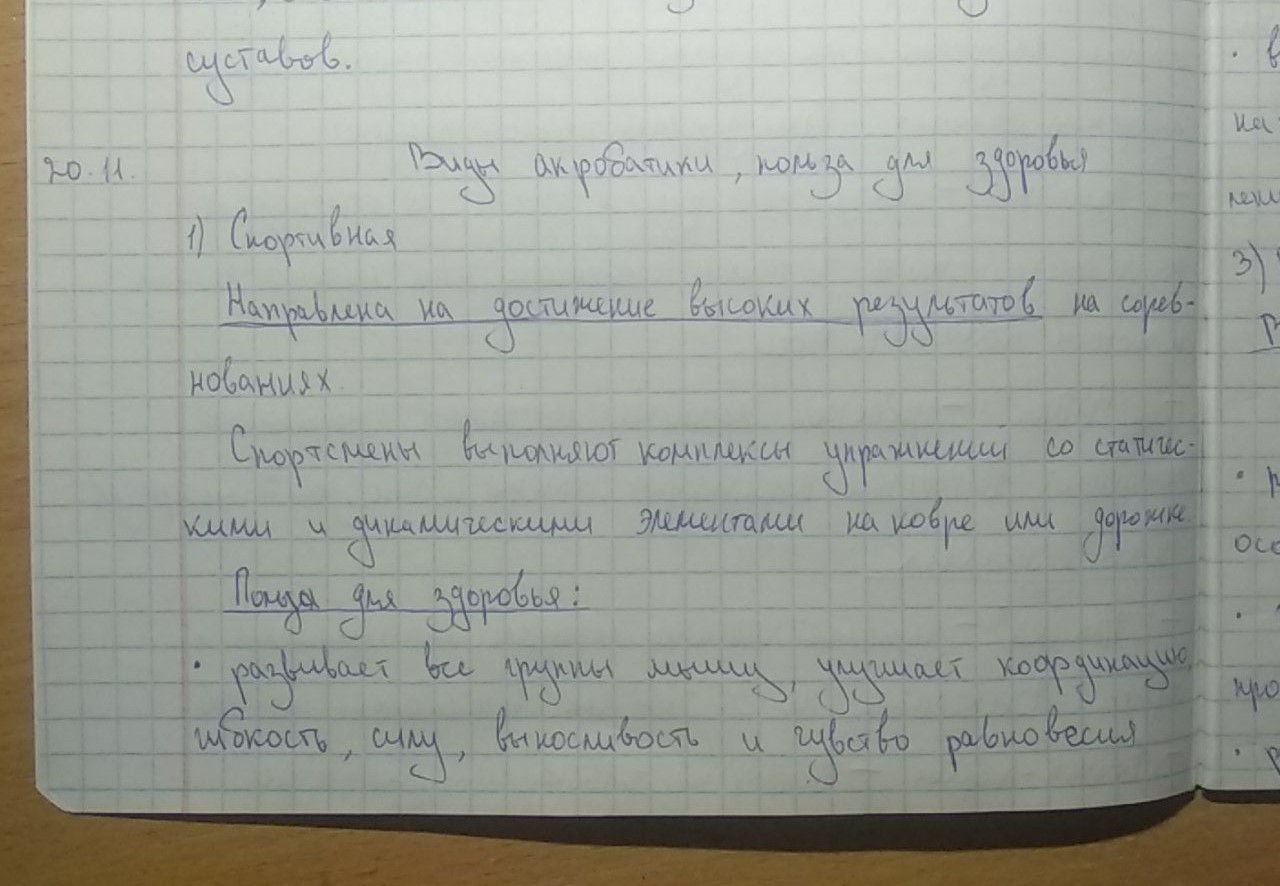 суставов.
20.11. Виды акробатики, польза для здоровья
1) Спортивная
Направлена на достижение высоких результатов на сорев-
нованиях.
Спортсмены выполняют комплексы упражнений со статичес-
кими и динамическими элементами на ковре или дорожке.
Польза для здоровья:
• развивает все группы мышц, улучшает координацию,
гибкость, силу, выносливость и чувство равновесия
3)